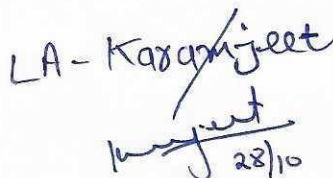 LA - Karamjeet
28/10